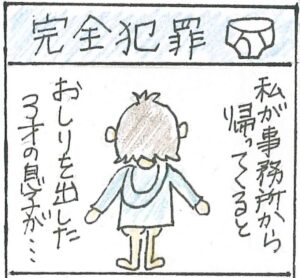 完全犯罪
私が事務所から
帰ってくると
おしりを出した
3才の息子が…